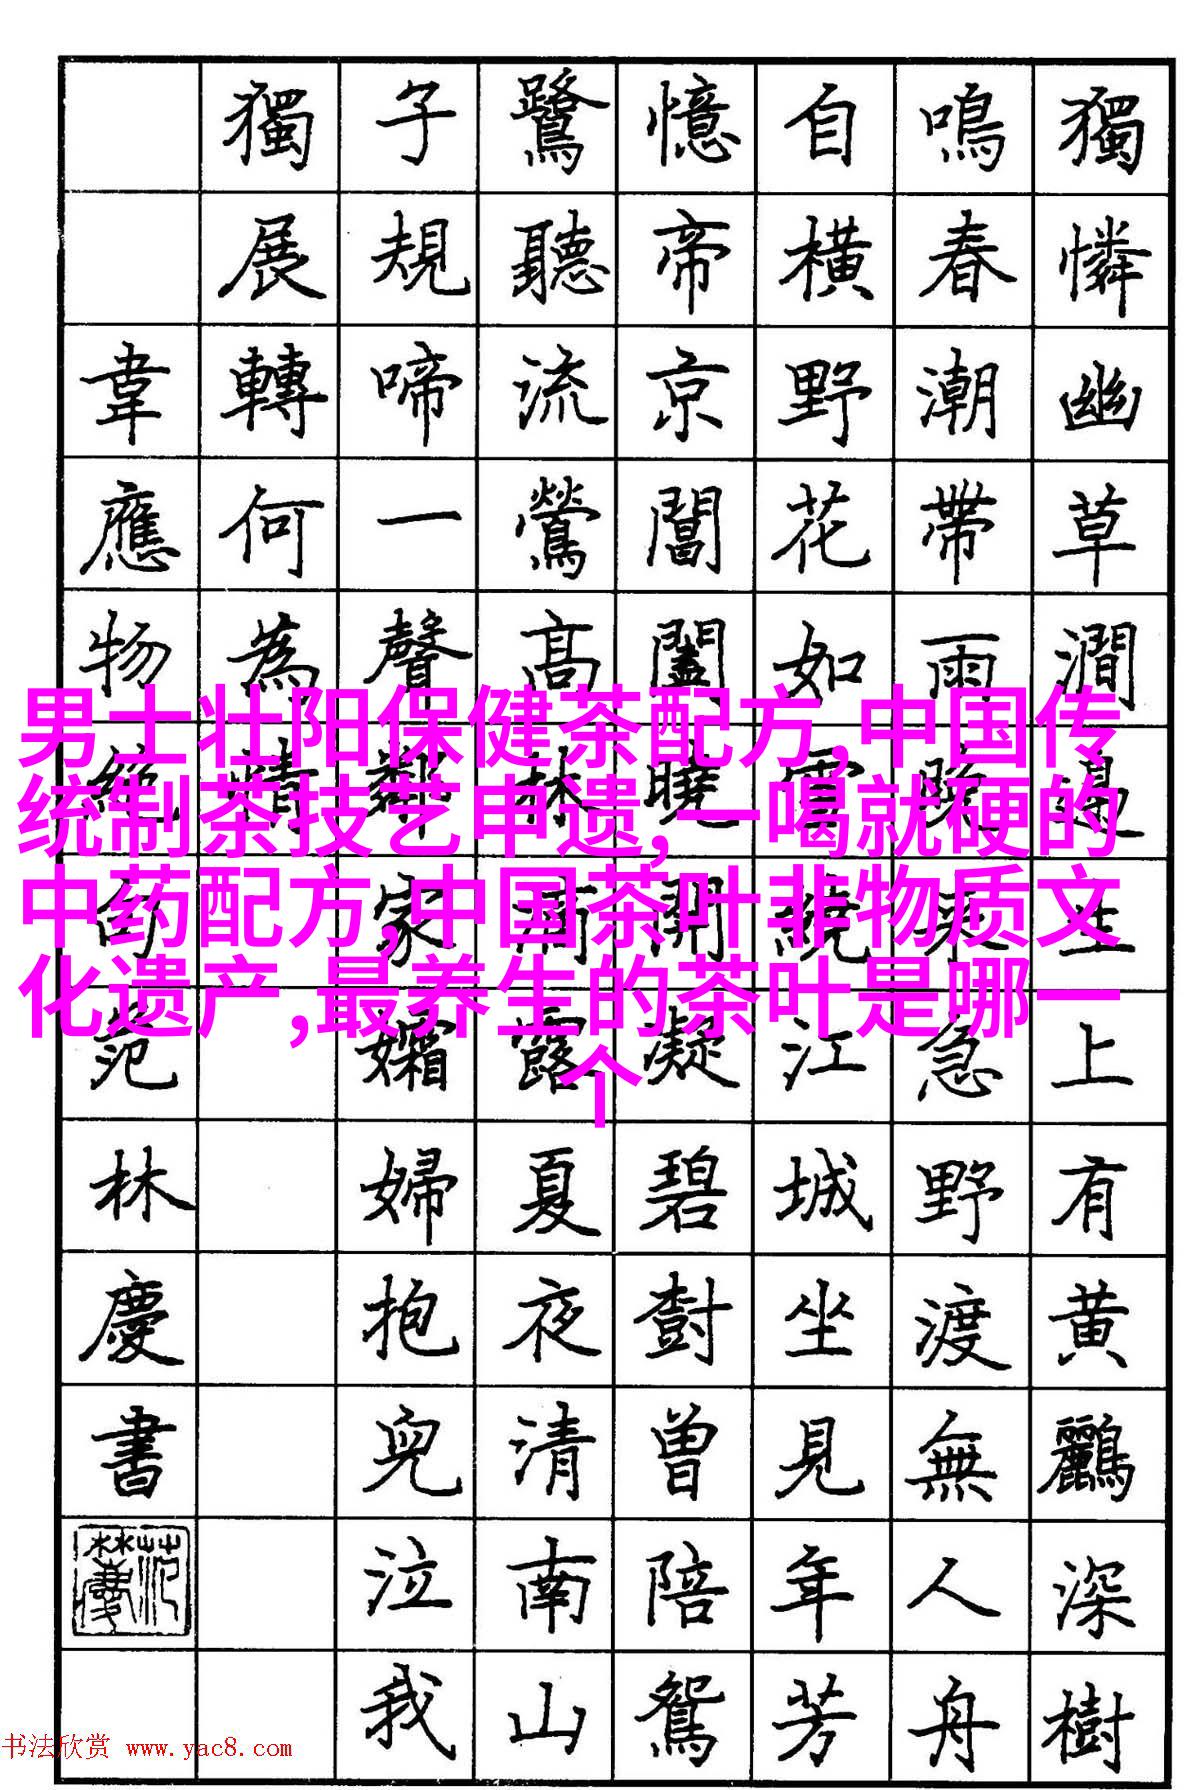 獨憐幽草澗邊生上有黄鸝深樹
鳴春潮帶雨晚來急野渡無人舟
自橫野花如雪繞江城坐見年芳
憶帝京閶闔曉開凝碧樹曾陪鴛
鷺聽流鶯高林滴露夏夜清南山
子規啼一聲鄰家孀婦抱兒泣我
獨展轉何為情
韋應物絕句范林慶書
男士壮阳保健茶配方,中国传
统制茶技艺申遗,一喝就硬的
中药配方,中国茶叶非物质文
化遗产,最养生的茶叶是哪一
个
书法欣赏 www.yac8.com